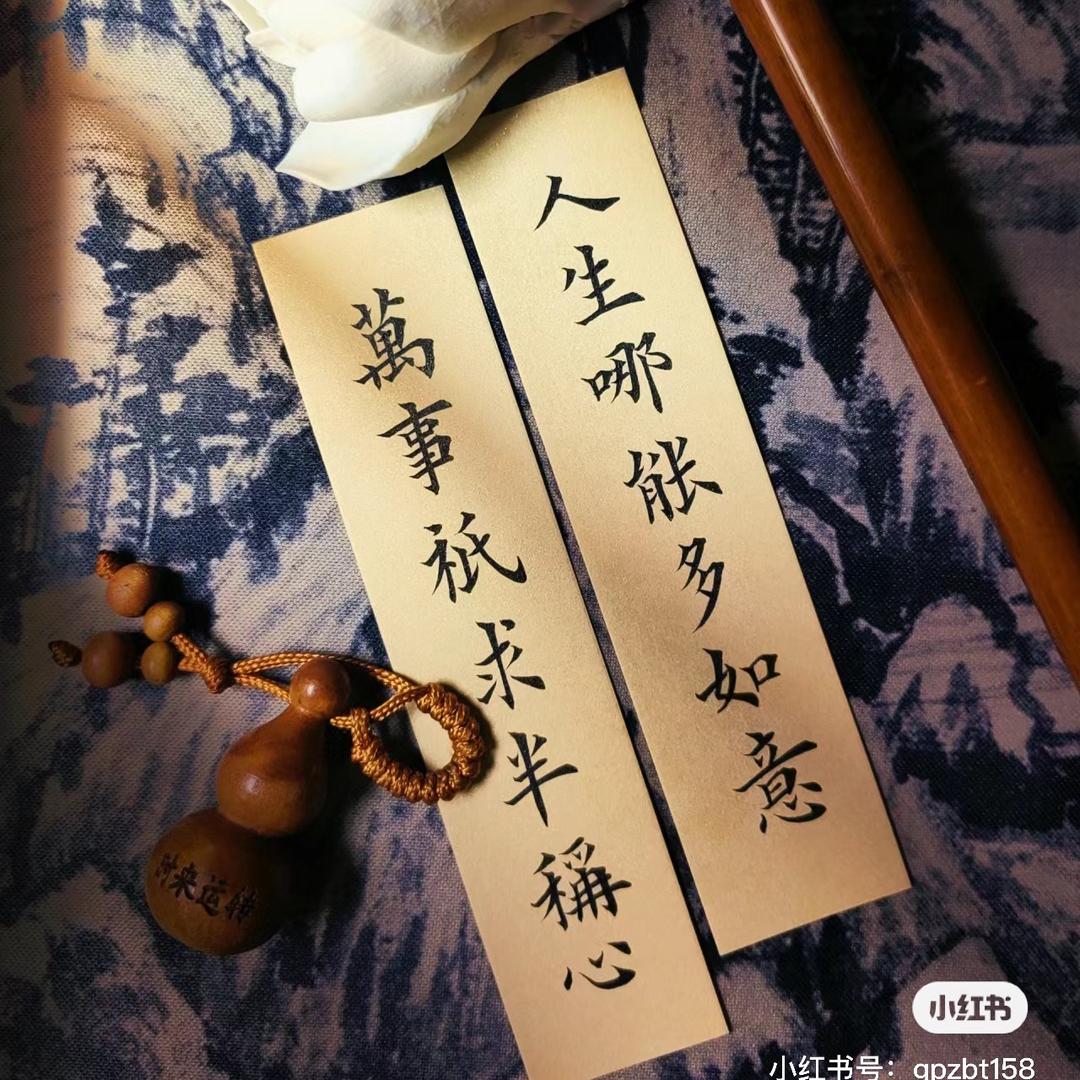 人生哪能多如意
萬事祇求半稱心
时来运转
小红书
小红书号：qpzbt158